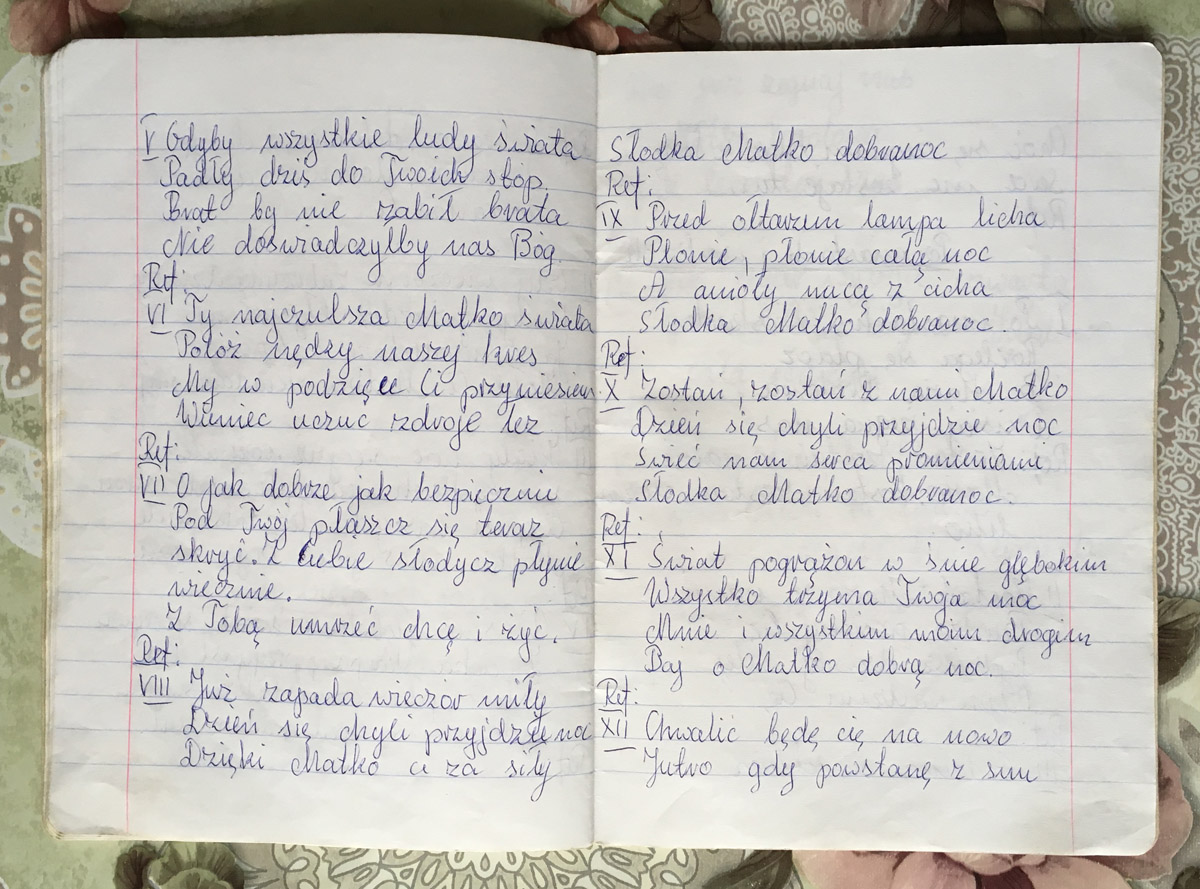 V Gdyby wszystkie ludy świata
Padły dziś do Twoich stóp.
Brat by nie zabił brata
Nie doświadczyłby nas Bóg.
Ref:
VI Ty najczulsza Matko świata
Połóż nędzy naszej kres
My w podzięce Ci przyniesiem
Wieniec uczuć zdroje łez
Ref:
VII O jak dobrze jak bezpiecznie
Pod Twój płaszcz się teraz
skryć. Z Ciebie słodycz płynie
wiecznie.
Z Tobą umrzeć chcę i żyć.
Ref:
VIII Już zapada wieczór miły
Dzień się chyli przyjdzie noc
Dzięki Matko ci za siły
Słodka Matko dobranoc
Ref:
IX Przed ołtarzem lampa licha
Płonie, płonie całą noc
A anioły nucą z cicha
Słodka Matko dobranoc.
Ref:
X Zostań, zostań z nami Matko
Dzień się chyli przyjdzie noc
Świeć nam serca promieniami
Słodka Matko dobranoc.
Ref:
XI Świat pogrążon w śnie głębokim
Wszystko trzyma Twoja moc
Mnie i wszystkim moim drogim
Daj o Matko dobrą noc.
Ref:
XII Chwalić będę cię na nowo
Jutro gdy powstanę z snu